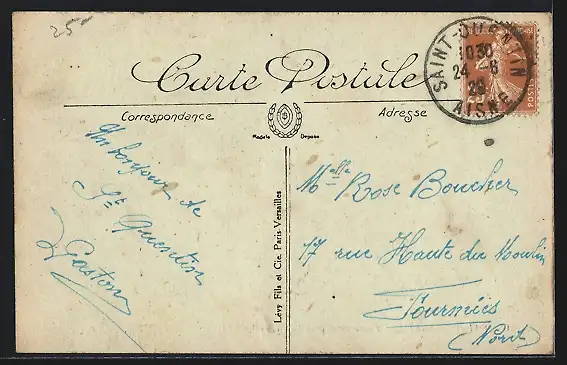 25
Carte Postale
Correspondance
Adresse
Modèle Déposé
SAINT-QUENTIN
1030
24 -6
26
AISNE
Un bonjour de
St Quentin
Gaston
Lévy Fils et Cie, Paris Versailles
Melle Rose Boucher
17 rue Haute du Moulin
Fourmies
(Nord)